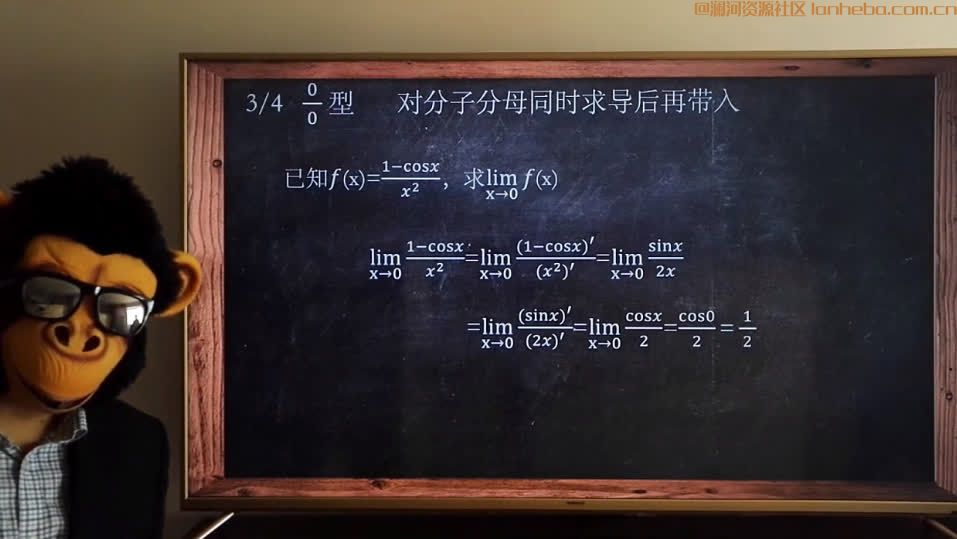 @澜河资源社区 lanheba.com.cn
3/4 0/0 型 对分子分母同时求导后再带入
已知f(x)=1−cosx/x²，求lim x→0 f(x)
lim x→0 1−cosx/x² = lim x→0 (1−cosx)′/(x²)′ = lim x→0 sinx/2x
= lim x→0 (sinx)′/(2x)′ = lim x→0 cosx/2 = cos0/2 = 1/2